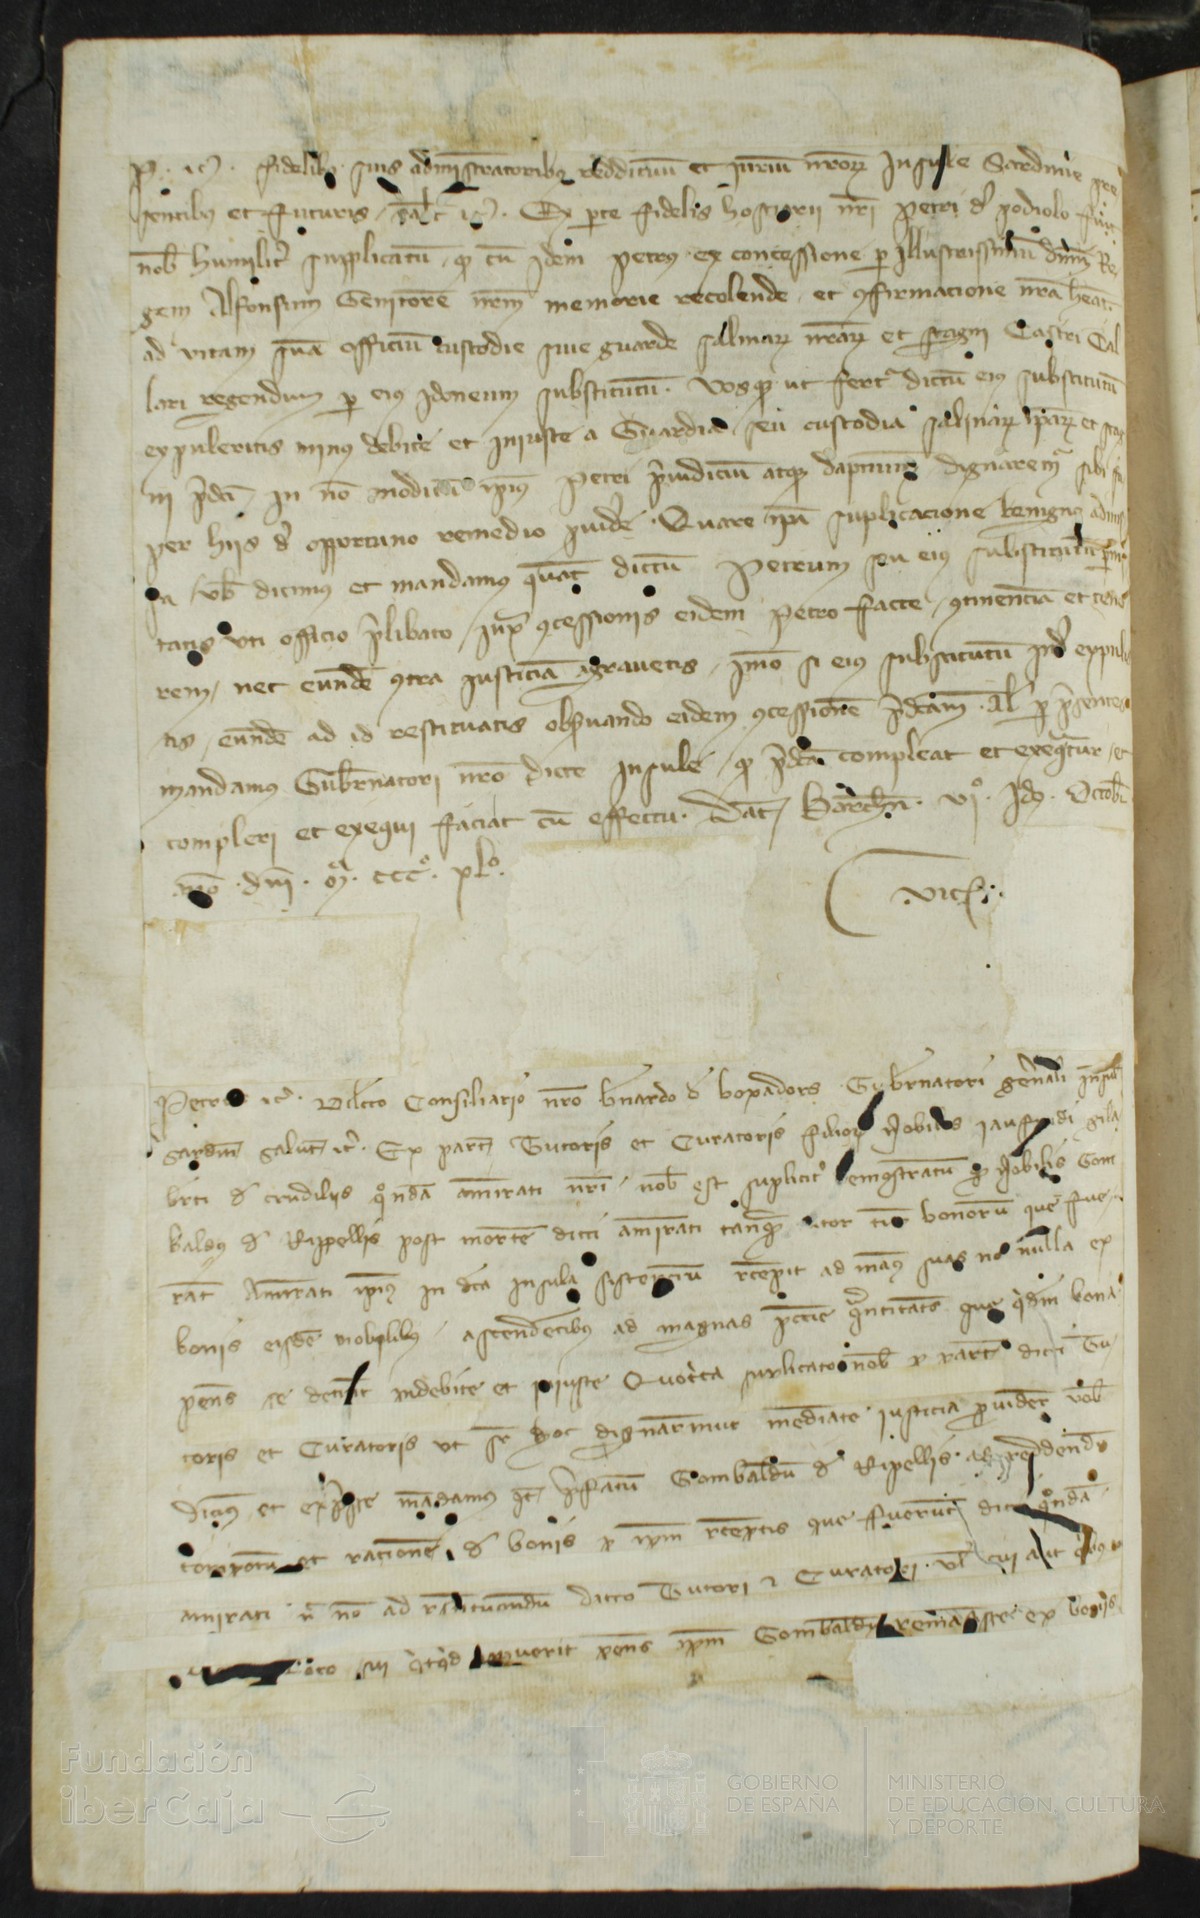 P. etc. fidelibus suis administratoribus reddituum et iurium nrorum Insule Sardinie pre
sentibus et futuris, salt etc. Ex parte fidelis hostiarii nri Petri de podiolo fuit
nob humilit supplicatu, q cu idem Petrus ex concessione p Illustrissimu dnm Re
gem Alfonsum Genitore nrm memorie recolende, et confirmacione nra heat
ad vitam sua officiu custodie sive guarde salinar nrar et stagni Castri Cal
lari regendum p eius idoneum substitutu. Vosq ut fert dictu eius substitutu
expuleritis minus debite et iniuste a Guardia seu custodia salinar ipar et stag
ni pdci in no modicu ipius Petri piudiciu atq dapnum dignarem sibi su
per hiis de opportuno remedio pvide. Quare ipa suplicacione benigne admis
sa vob dicimus et mandamus quat dictu Petrum seu eius substitutu pmit
tatis uti officio plibato, iux concessionis eidem Petro facte, continencia et teno
rem, nec eunde contra iusticia agravetis, imo si eius substitutu inde expuli
tis, eunde ad id restituatis observando eidem concessione pdcam. Al p psentes
mandamus Gubnatori nro dicte insule, q pdca compleat et exequatur, et
compleri et exequi faciat cu effectu. Dat Barchn. VIº. Idus. Octobr
Ano. dni. Mº. CCCº. xlº.
Petrus etc. Dilcto Consiliario nro bnardo de boxadors Gubrnatori genali insule
Sardin salut etc. Ex part Tutoris et Curatoris filior Nobilis Jaufridi gila
brti de crudiliis qonda amirati nri, nob est suplicit demostratu q Nobilis Gom
baldus de Ripellis post morte dicti amirati tanq tutor bonoru que fue
rat Amirati ipius in dca insula sistenciu recepit ad manus suas no nulla ex
bonis eisde mobilibus, ascendetibus ad magnas peccie quantitates que qdem bona
penes se detinet indebite et iniuste Quocirca suplicato nob p parte dicti Tu
toris et Curatoris ut sr hoc dignaremur mediate iusticia providere vob
dicimus et expsse madamus qt pfatu Gombaldu de Ripellis ad reddendu
compotu et racione, de bonis p ipm receptis que fuerut dicti qonda
amirati n no ad restituendu dicto Tutori et Curatori. vl cui aut quibus
loco sui qtqd penes ipm Gombaldu remansisse ex bonis
Fundación
iberCaja
GOBIERNO
DE ESPAÑA
MINISTERIO
DE EDUCACIÓN, CULTURA
Y DEPORTE